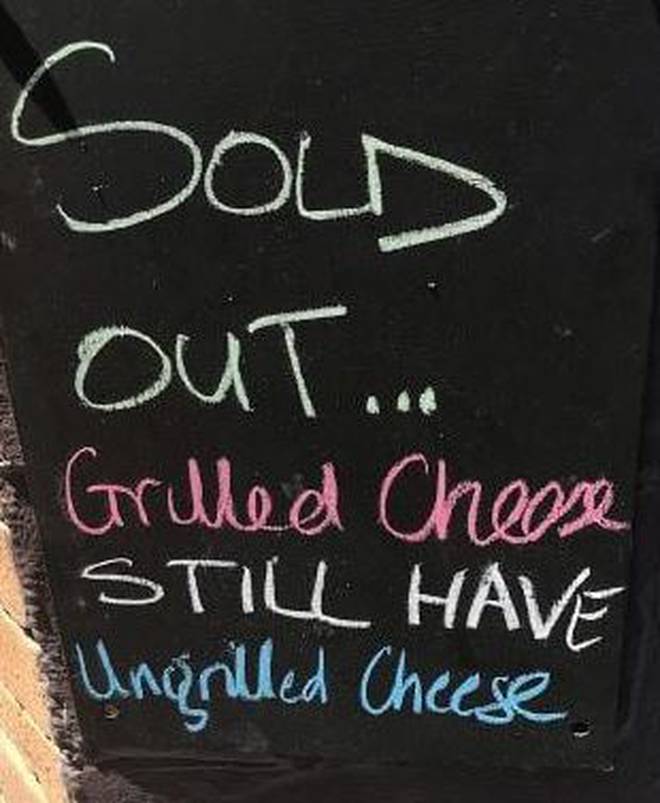 SOLD
OUT...
Grilled Cheese
STILL HAVE
Ungrilled Cheese